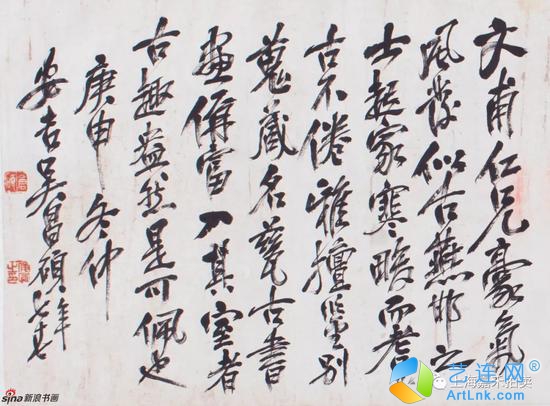 文甫仁兄豪氣
風發似古燕邯之
士起家寒畯而耆
古不倦雅擅鑒別
蒐藏名甆古書
畫侔富入其室者
古趣盎然是可佩也
庚申冬仲
安吉吴昌碩年七十七
sina新浪书画
上海嘉禾拍卖
艺连网
ArtLink.com